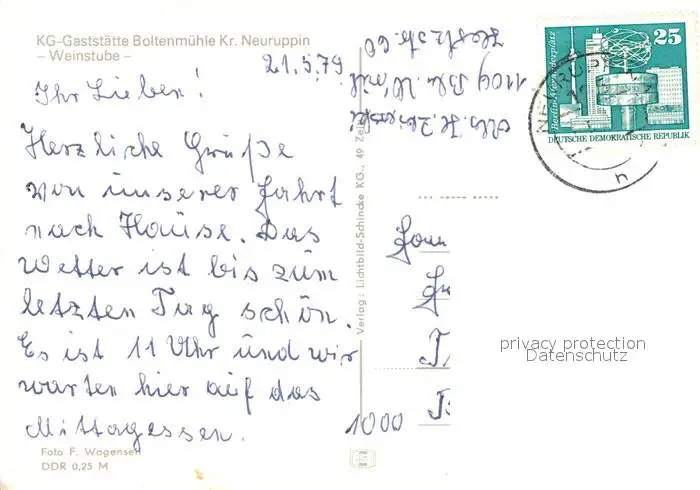 KG-Gaststätte Boltenmühle Kr. Neuruppin
– Weinstube –
21.5.79
Ihr Lieben!
Herzliche Grüße
von unserer Fahrt
nach Hause. Das
Wetter ist bis zum
letzten Tag schön.
Es ist 11 Uhr und wir
warten hier auf das
Mittagessen.
Foto F. Wagensen
DDR 0,25 M
Verlag: Lichtbild-Schincke KG., 49 Zei
1109 Bln.
60
25
Berlin-Alexanderplatz
DEUTSCHE DEMOKRATISCHE REPUBLIK
NEURUPP
n
Fam
1000
privacy protection
Datenschutz